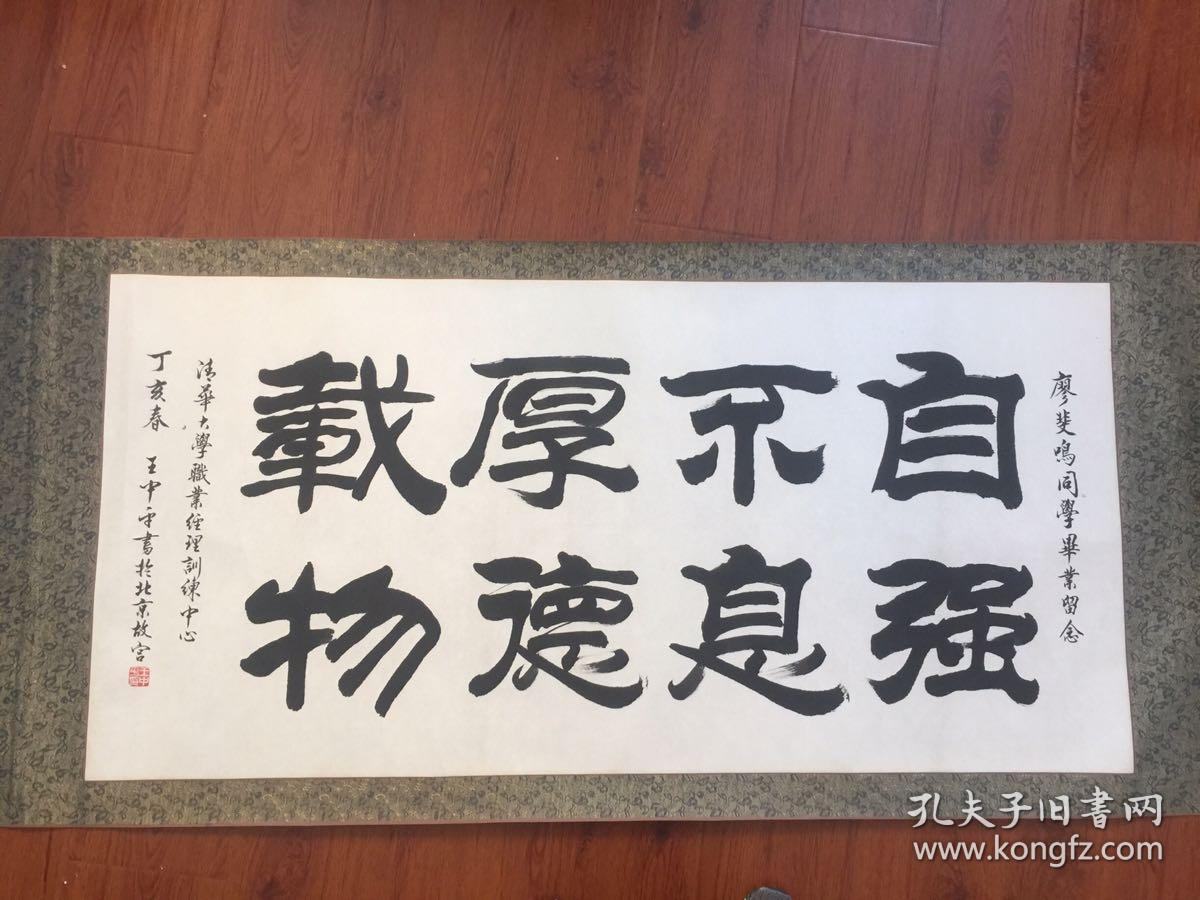 廖斐鳴同學畢業留念
自强
不息
厚德
載物
清華大學職業經理訓練中心
丁亥春 王中平書於北京故宮
孔夫子旧书网
www.kongfz.com